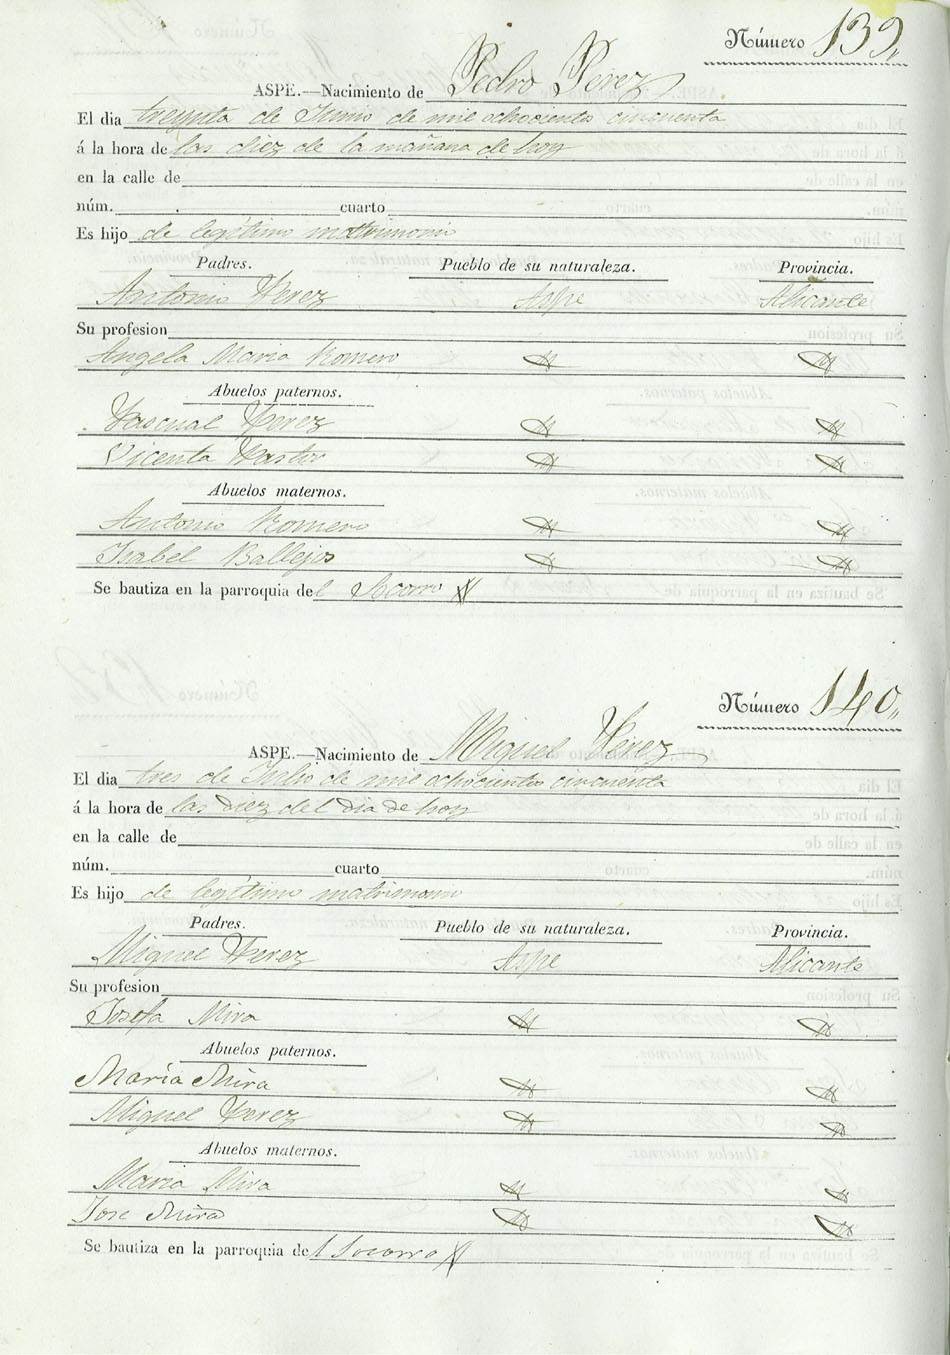 Número 139,,
ASPE.—Nacimiento de Pedro Perez
El dia treynta de Junio de mil ochocientos cincuenta
á la hora de las diez de la mañana de hoy
en la calle de
núm. cuarto
Es hijo de legitimo matrimonio
Padres. Pueblo de su naturaleza. Provincia.
Antonio Perez Aspe Alicante
Su profesion
Angela Maria Romero
Abuelos paternos.
Pascual Perez
Vicenta Pastor
Abuelos maternos.
Antonio Romero
Isabel Ballejos
Se bautiza en la parroquia del Socorro
Número 140,,
ASPE.—Nacimiento de Miguel Perez
El dia tres de Julio de mil ochocientos cincuenta
á la hora de las diez del dia de hoy
en la calle de
núm. cuarto
Es hijo de legitimo matrimonio
Padres. Pueblo de su naturaleza. Provincia.
Miguel Perez Aspe Alicante
Su profesion
Josefa Mira
Abuelos paternos.
Maria Mira
Miguel Perez
Abuelos maternos.
Maria Mira
Jose Mira
Se bautiza en la parroquia del Socorro